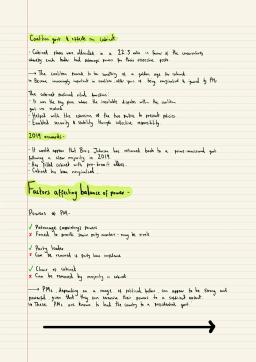 Coalition govt & effects on cabinet
- Cabinet places were allocated in a 22:5 ratio in favour of the conservatives
whereby each leader had patronage power for their respective posts.
→ The coalition proved to be something of a golden age for cabinet
↳ Became increasingly important in coalition after years of being marginalised & ignored by PMs
The cabinet realised vital functions:
- It was the key place where the inevitable disputes within the coalition
govt was resolved
- Helped with the cohesion of the two parties to present policies
- Enabled security & stability through collective responsibility
2019 onwards -
- It would appear that Boris Johnson has returned back to a prime-ministerial govt
following a clear majority in 2019.
- Has filled cabinet with pro-brexit allies.
- Cabinet has been marginalised
Factors affecting balance of power -
Powers of PM-
✓ Patronage (appointing) powers
✗ Forced to promote senior party members - may be rivals
✓ Party leader
✗ Can be removed if party lose confidence
✓ Chair of cabinet
✗ Can be removed by majority in cabinet
→ PMs, depending on a range of political factors, can appear to be strong and
powerful given that they can exercise their powers to a sufficient extent.
↳ These PMs are known to lead the country to a presidential govt.